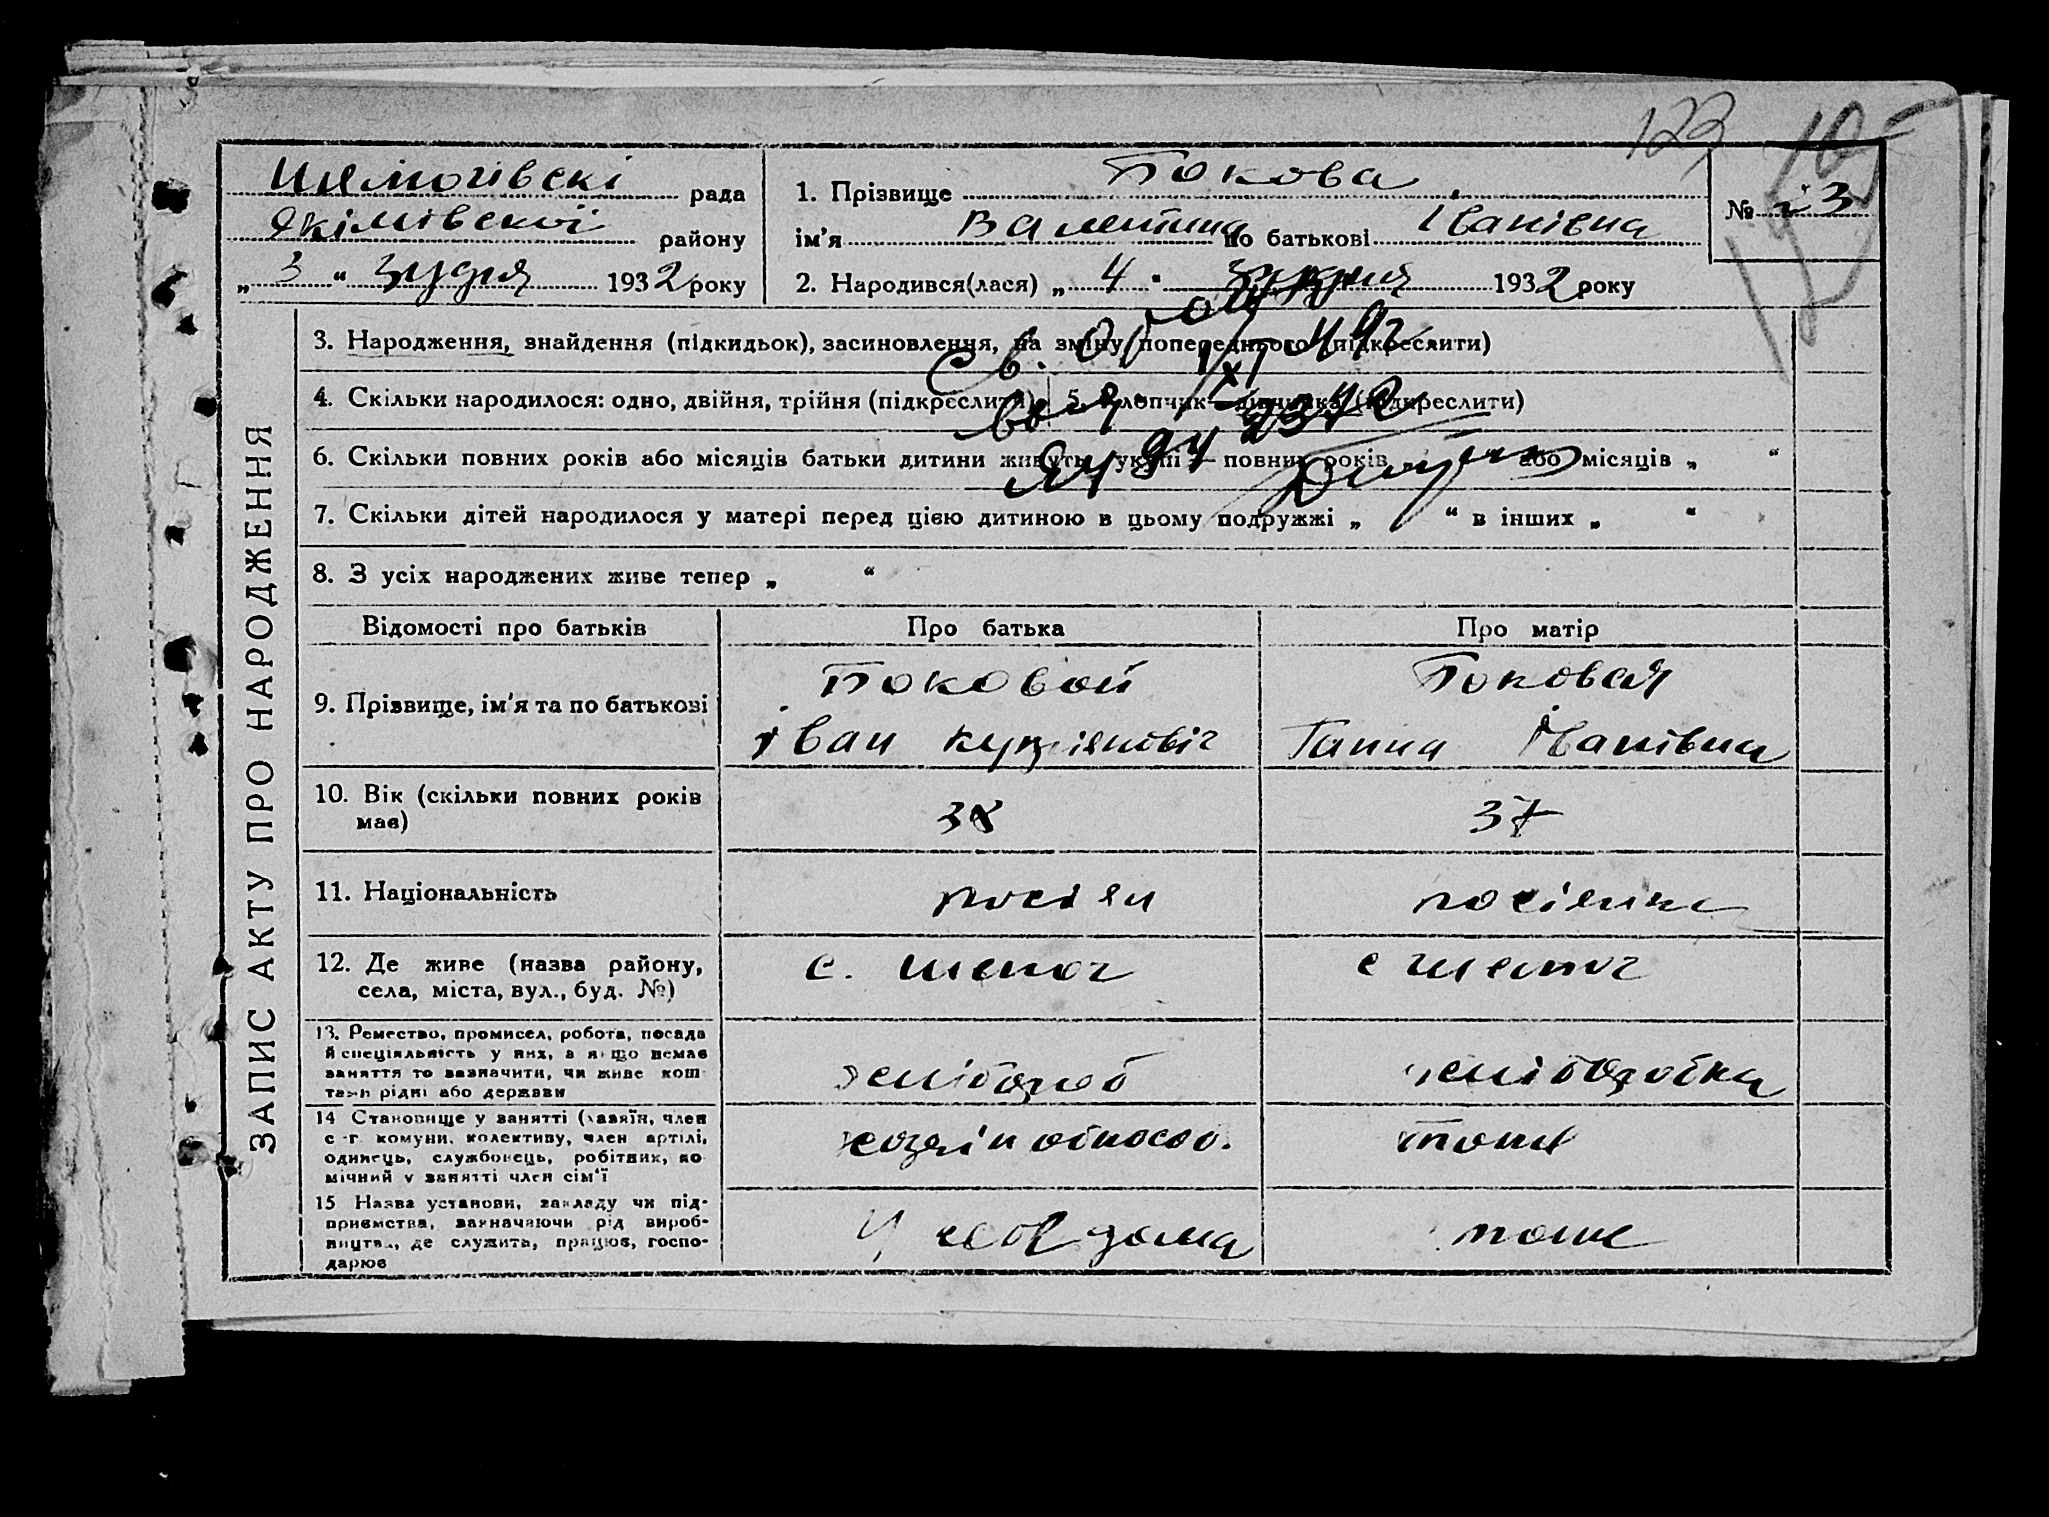 123
рада
1. Прізвище Бокова
№ 3
району
ім'я Валентина по батькові Іванівна
„ 3 “ грудня 1932 року
2. Народився(лася) „ 4 “ грудня 1932 року
ЗАПИС АКТУ ПРО НАРОДЖЕННЯ
3. Народження, знайдення (підкидьок), засиновлення, на зміну попереднього (підкреслити)
4. Скільки народилося: одно, двійня, трійня (підкреслити) 5. Хлопчик—дівчинка (підкреслити)
6. Скільки повних років або місяців батьки дитини живуть укупі — повних років або місяців „ “
7. Скільки дітей народилося у матері перед цією дитиною в цьому подружжі „ “ в інших „ “
8. З усіх народжених живе тепер „ “
Відомості про батьків Про батька Про матір
9. Прізвище, ім'я та по батькові
Боковой
Іван
Боковая
Ганна Іванівна
10. Вік (скільки повних років має)
38
37
11. Національність
росіян
росіянка
12. Де живе (назва району, села, міста, вул., буд. №)
с.
с
13. Ремество, промисел, робота, посада
й спеціяльність у них, а якщо немає
заняття то зазначити, чи живе кош-
тами рідні або держави
хлібороб
хліборобка
14 Становище у занятті (хазяїн, член
с-г. комуни, колективу, член артілі,
одинець, службовець, робітник, по-
мічний у занятті член сім'ї
тоже
15 Назва установи, закладу чи під-
приємства, зазначаючи рід вироб-
ництва, де служить, працює, госпо-
дарює
У себя дома
тоже